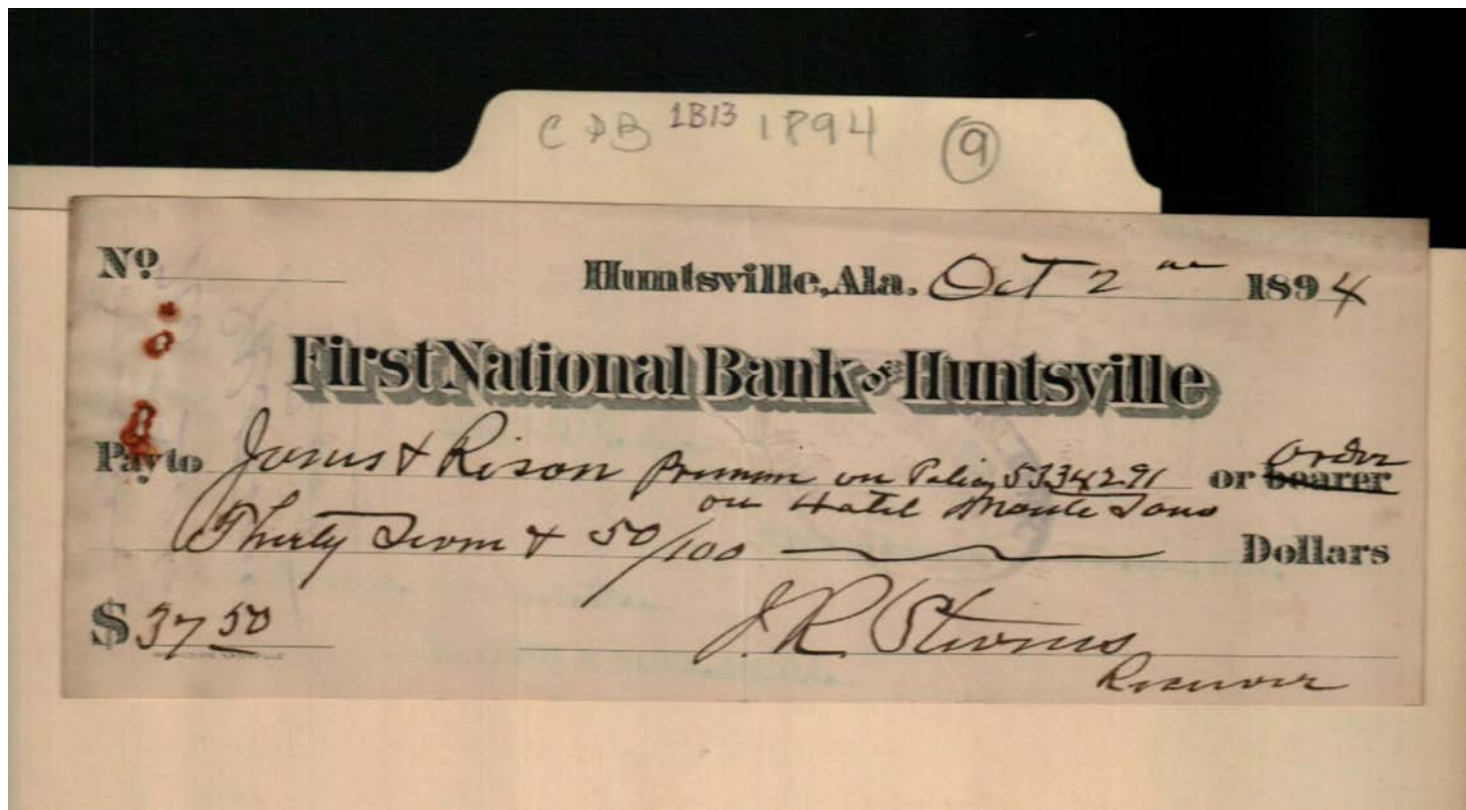 CDB 1B13 1894 9
No.
Huntsville, Ala. Oct 2 1894
First National Bank OF Huntsville
order
Pay to Jones & Rison Premium on Policy 5334291 or bearer
on Hotel Monte Sano
Thirty Seven & 50/100 Dollars
$ 37 50
J. R. Stevens
Receiver